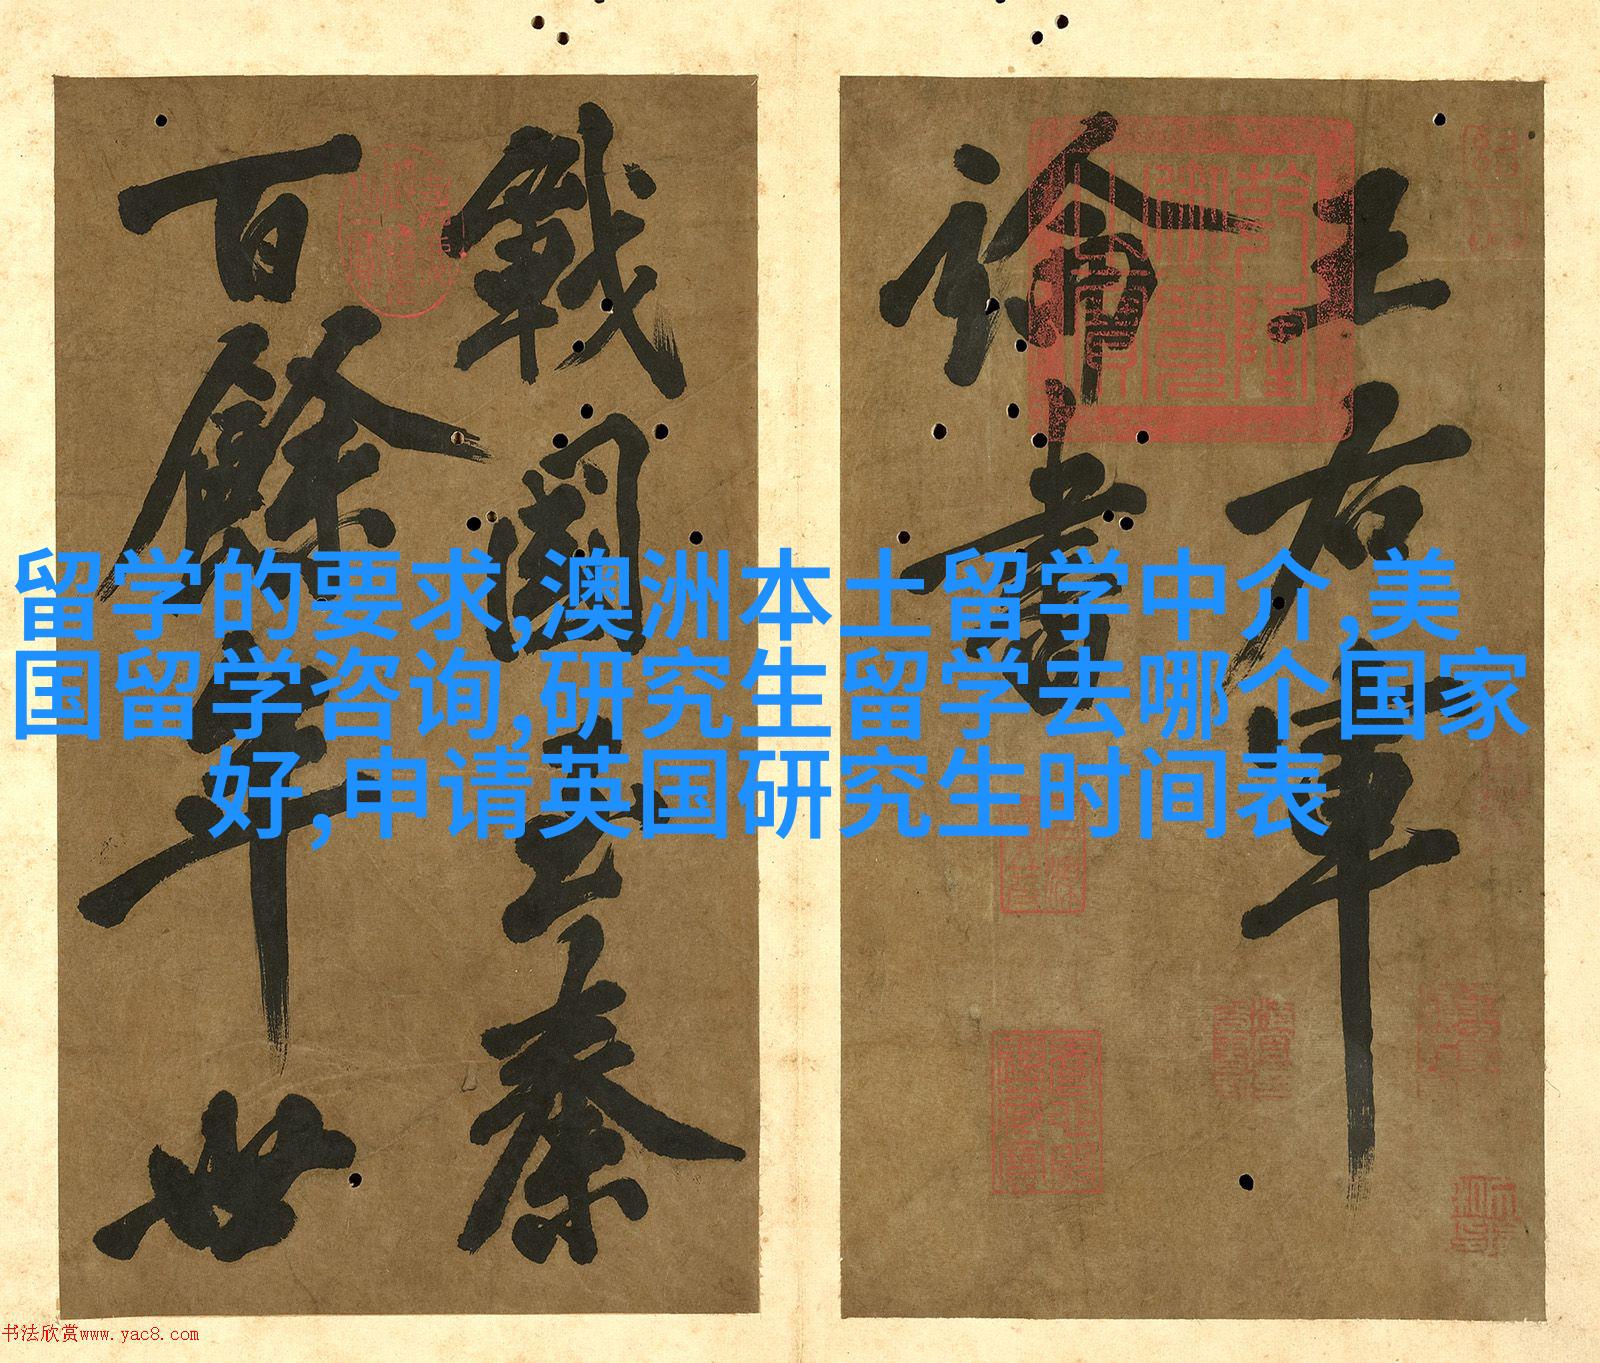 王右軍
論書
戰國至秦
百餘年世
留学的要求,澳洲本土留学中介,美
国留学咨询,研究生留学去哪个国家
好,申请英国研究生时间表
书法欣赏www.yac8.com